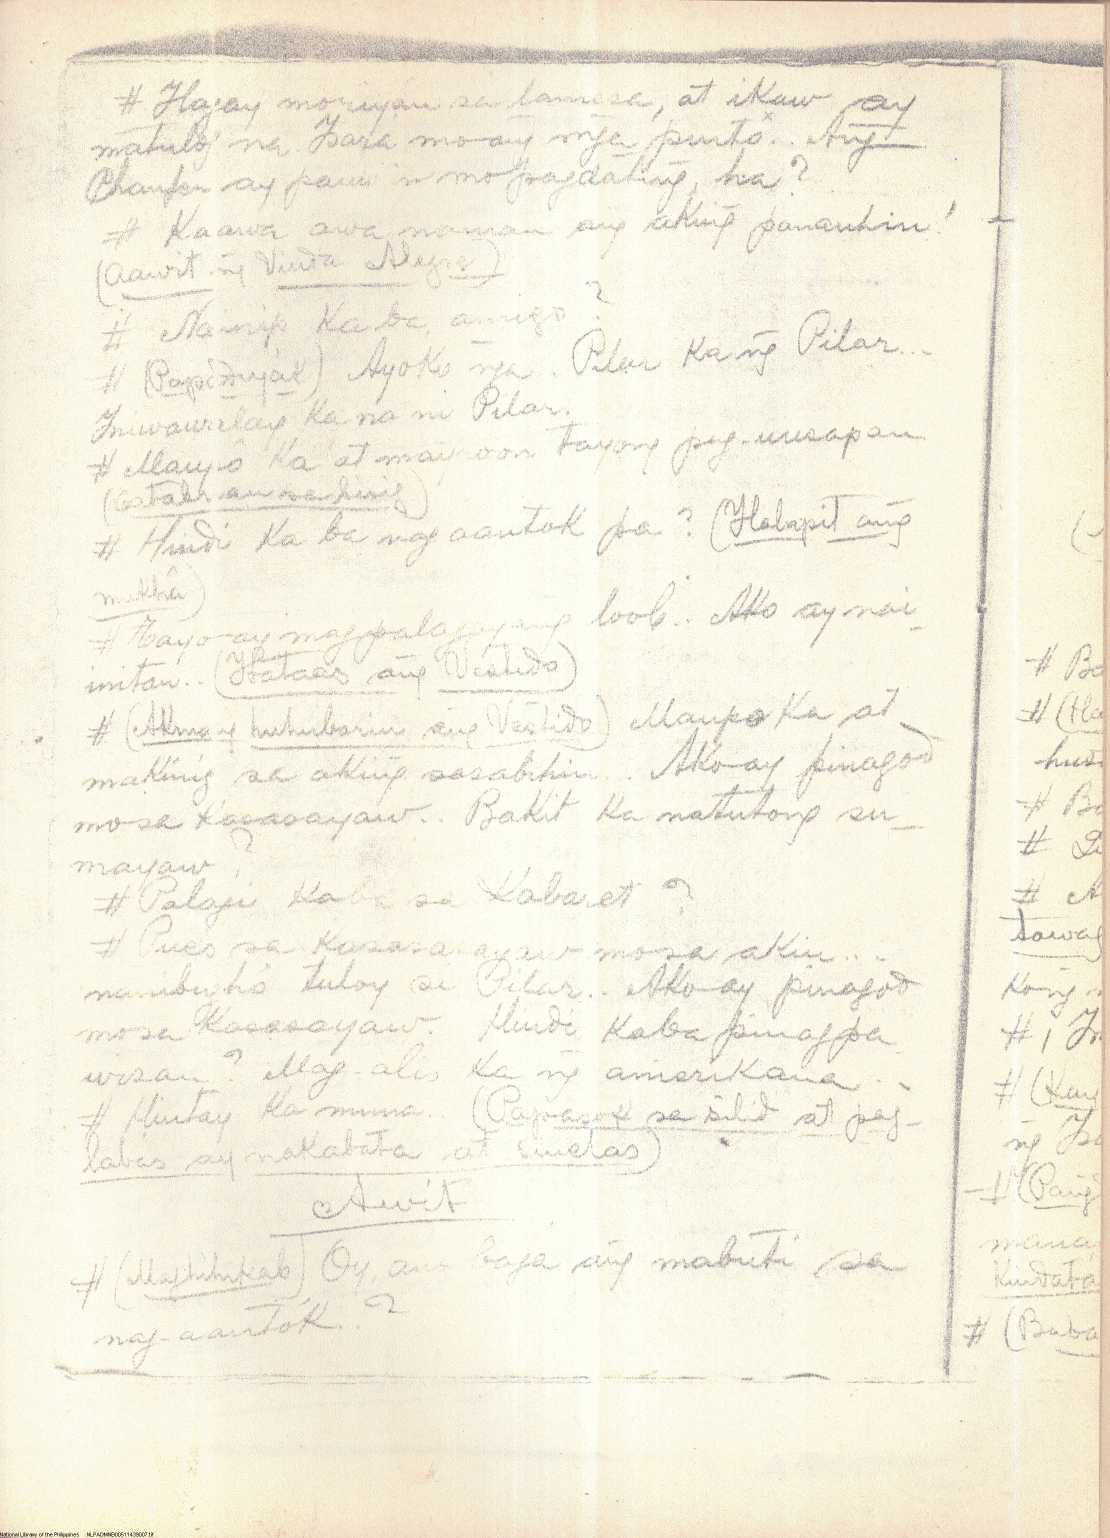 # Ilagay mo riyan sa lamesa, at ikaw ay
matulog na. Isara mo ang mga pinto.. Ang
Chaufer ay pauiin mo pagdating, ha?
# Kaawa awa naman ang aking panauhin!
(Aawit ng Viuda Alegre)
# Nainip ka ba, amigo?
# (Papidiyak) Ayoko nga. Pilar ka ng Pilar...
Iniwawalay ka na ni Pilar.
# Maupô ka at mayroon tayong pag-uusapan
# Hindi ka ba nag aantok pa? (Ilalapit ang
mukhâ)
# Tayo ay magpalagay ang loob.. Ako ay nai-
initan.. (Itataas ang Vestido)
# (Akmang huhubarin ang Vestido) Maupo ka at
makinig sa aking sasabihin.. Ako ay pinagod
mo sa kasasayaw.. Bakit ka natutong su-
mayaw?
# Palagi kaba sa Kabaret?
# Pues sa kasasasayaw mo sa akin...
naninibughô tuloy si Pilar.. Ako ay pinagod
mo sa kasasayaw. Hindi kaba pinagpa
wisan? Mag-alis ka ng amerikana...
# Hintay ka muna.. (Papasok sa silid at pag-
labas ay nakabata at sinelas)
Awit
# (Maghihikab) Oy, ano baga ang mabuti sa
nag-aantók..?
# Ba
# (Ha
hus
# Ba
#
# A
tawag
Kong
# I In
# (Kay
ng Is
# (Pang
mana
Kindata
# (Buba
National Library of the Philippines NLPADMNB00511439007